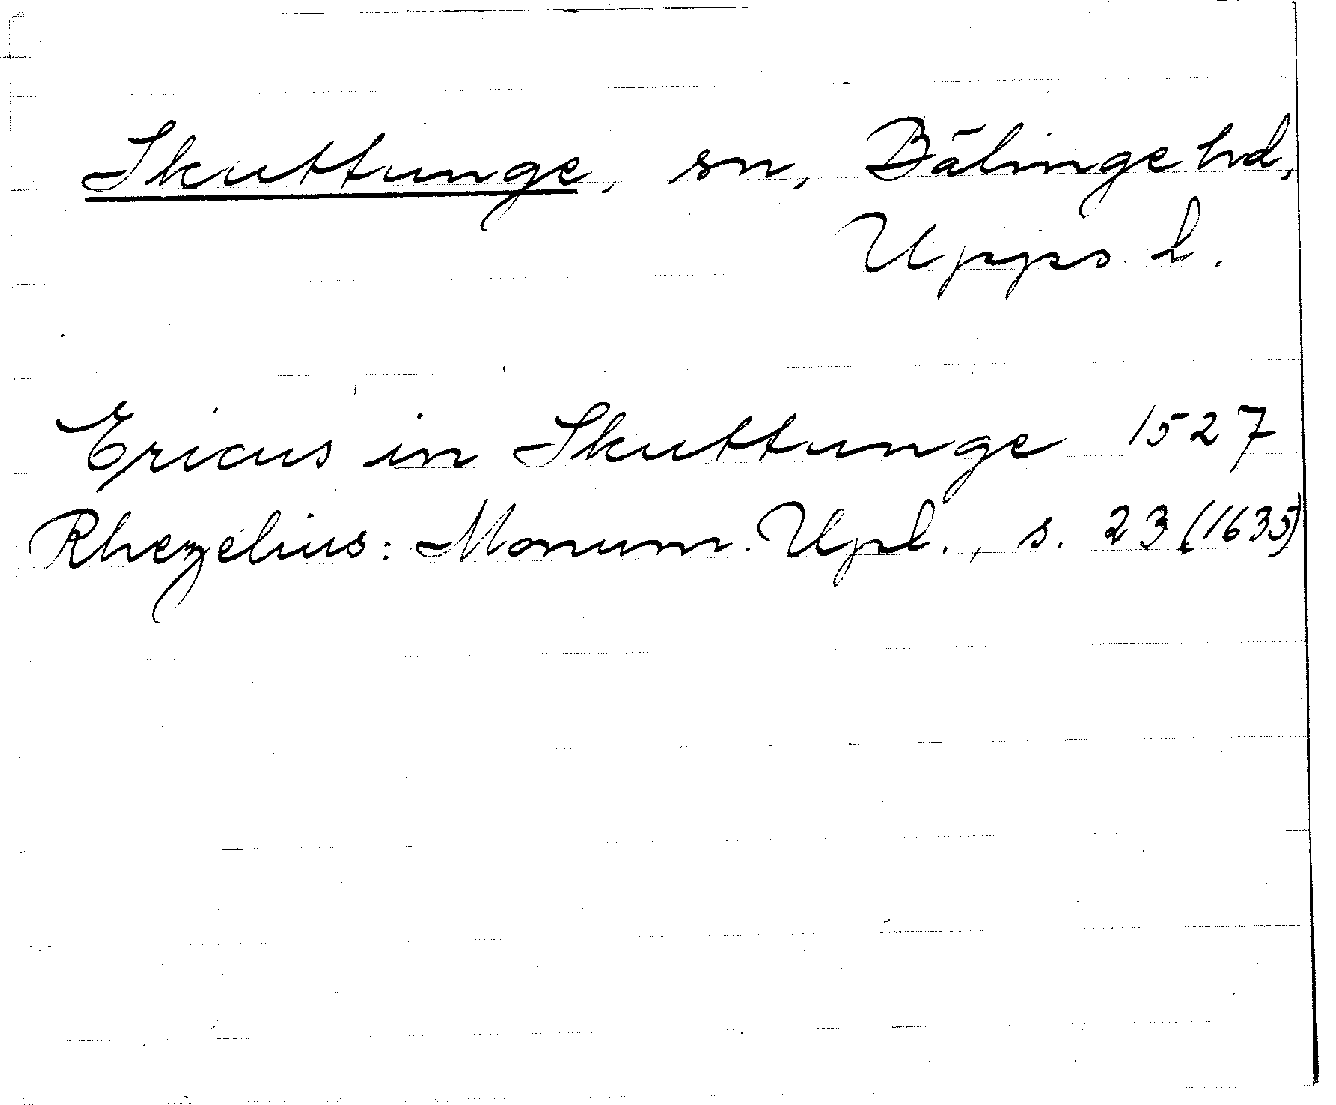 Skuttunge, sn, Bälinge hd,
Upps l.
Ericus in Skuttunge 1527
Rhezelius: Monum. Upl., s. 23 (1635)